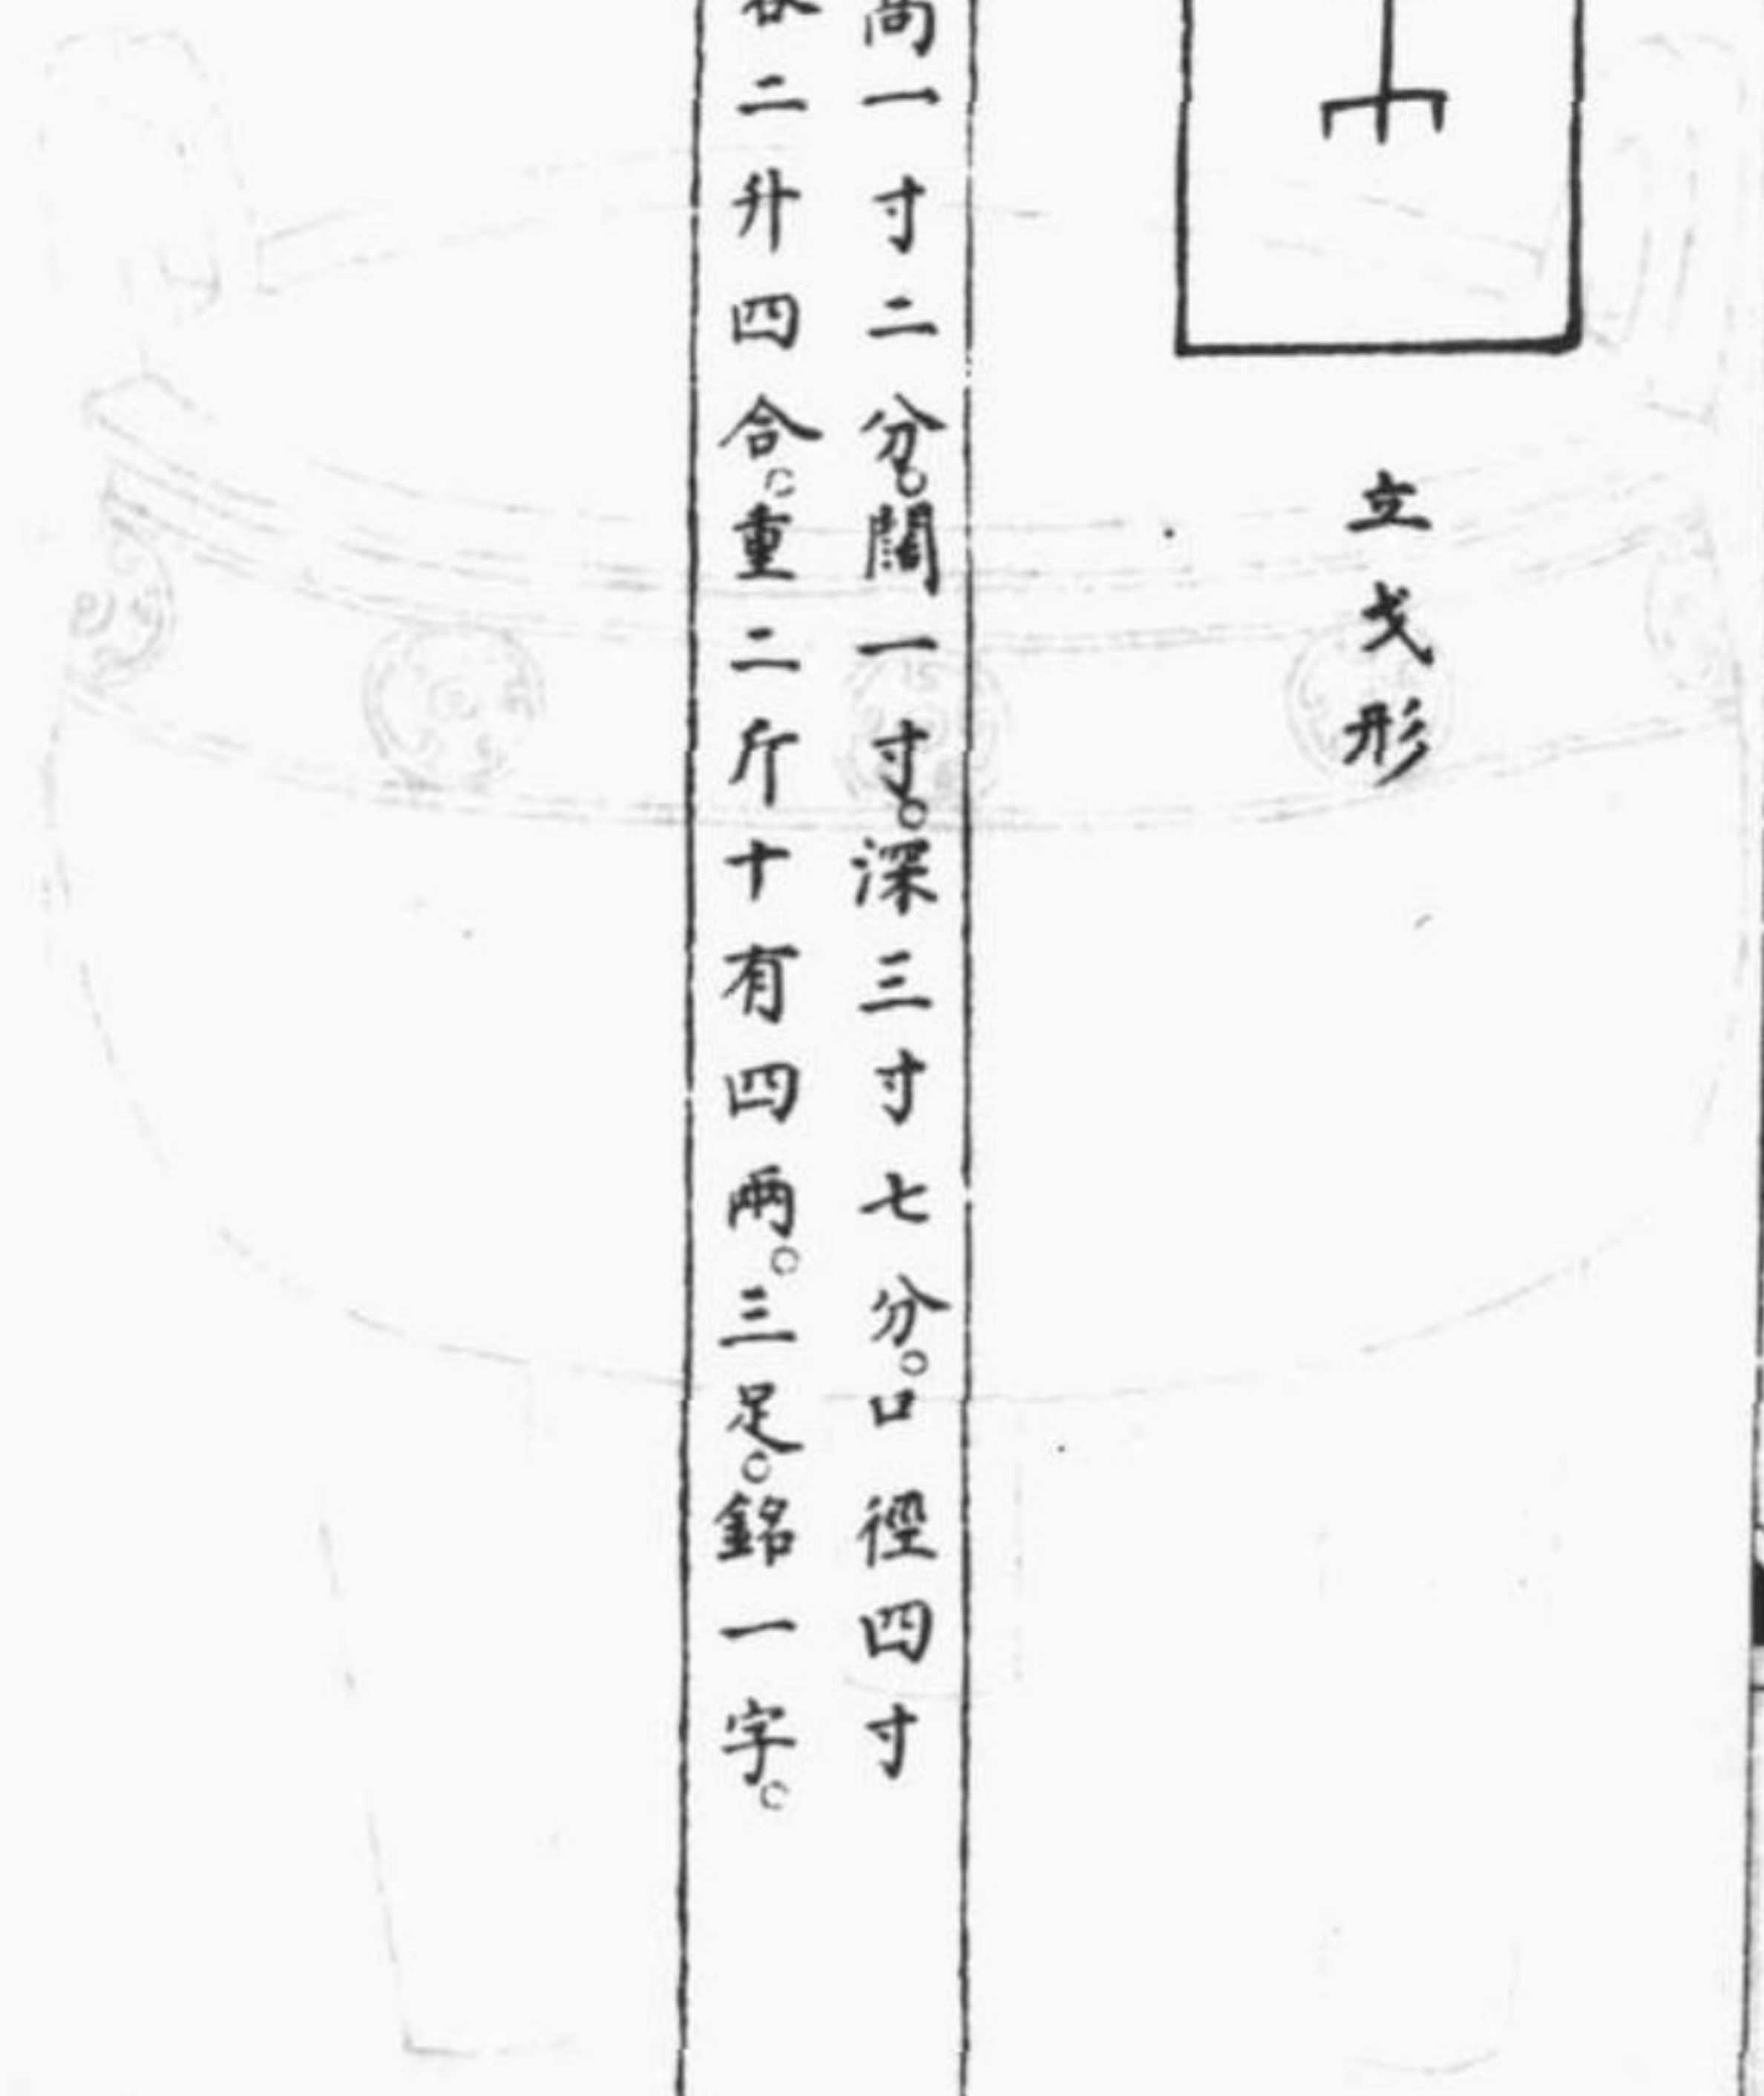 立戈形
高一寸二分。闊一寸。深三寸七分。口徑四寸
容二升四合。重二斤十有四兩。三足。銘一字。